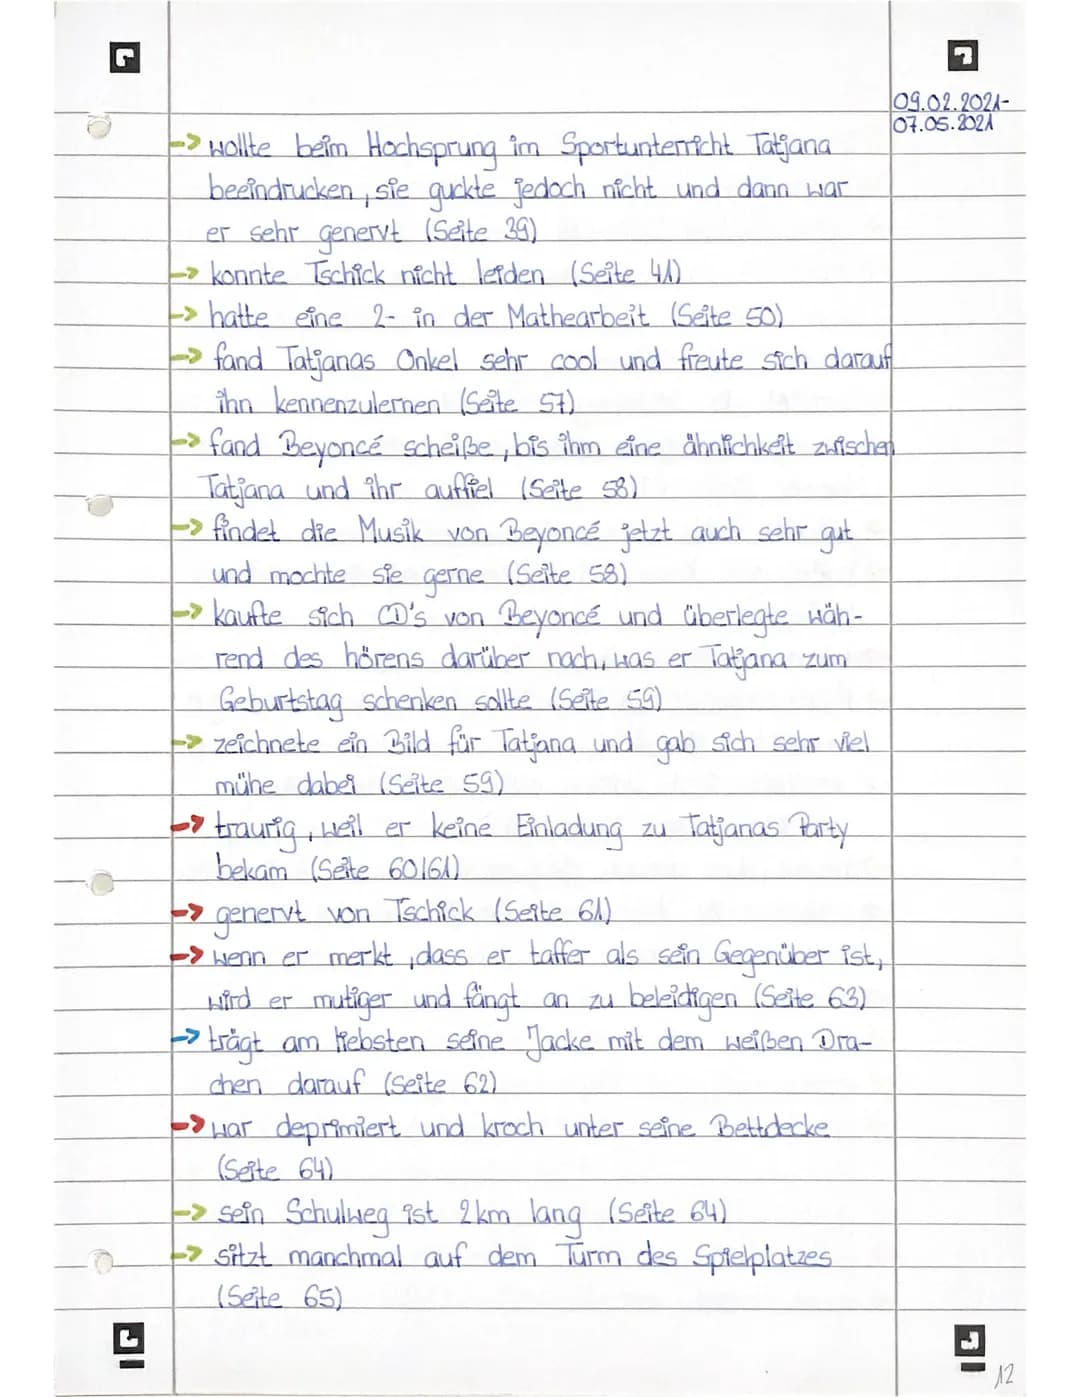 09.02.2021-
07.05.2021
-> wollte beim Hochsprung im Sportunterricht Tatjana
beeindrucken, sie guckte jedoch nicht und dann war
er sehr genervt (Seite 39)
-> konnte Tschick nicht leiden (Seite 41)
-> hatte eine 2- in der Mathearbeit (Seite 50)
-> fand Tatjanas Onkel sehr cool und freute sich darauf
ihn kennenzulernen (Seite 57)
-> fand Beyoncé scheiße, bis ihm eine ähnlichkeit zwischen
Tatjana und ihr auffiel (Seite 58)
-> findet die Musik von Beyoncé jetzt auch sehr gut
und mochte sie gerne (Seite 58)
-> kaufte sich CD's von Beyoncé und überlegte wäh-
rend des hörens darüber nach, was er Tatjana zum
Geburtstag schenken sollte (Seite 59)
-> zeichnete ein Bild für Tatjana und gab sich sehr viel
mühe dabei (Seite 59)
-> traurig, weil er keine Einladung zu Tatjanas Party
bekam (Seite 60/61)
-> genervt von Tschick (Seite 61)
-> wenn er merkt, dass er taffer als sein Gegenüber ist,
wird er mutiger und fängt an zu beleidigen (Seite 63)
-> trägt am liebsten seine Jacke mit dem weißen Dra-
chen darauf (Seite 62)
-> war deprimiert und kroch unter seine Bettdecke
(Seite 64)
-> sein Schulweg ist 2km lang (Seite 64)
-> sitzt manchmal auf dem Turm des Spielplatzes
(Seite 65)
12